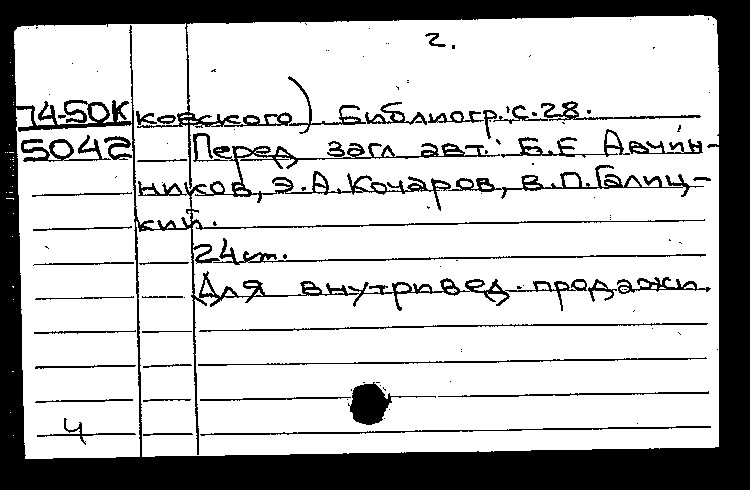 2.
74-50К ковского) Библиогр.: с. 28.
5042 Перед загл авт.: Б.Е. Авчин-
ников, Э.А. Кочаров, В.П. Галиц-
кий.
24 см.
Для внутривед. продажи.
4